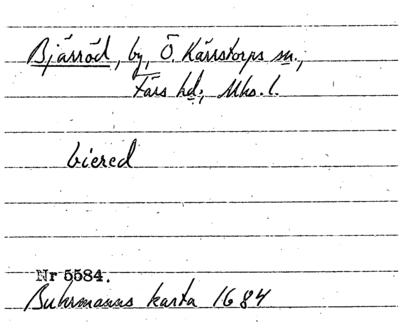 Bjärröd, by, Ö. Kärrstorps sn.,
Färs hd; Mhs. l.
biered
Nr 5584.
Buhrmanns karta 1684